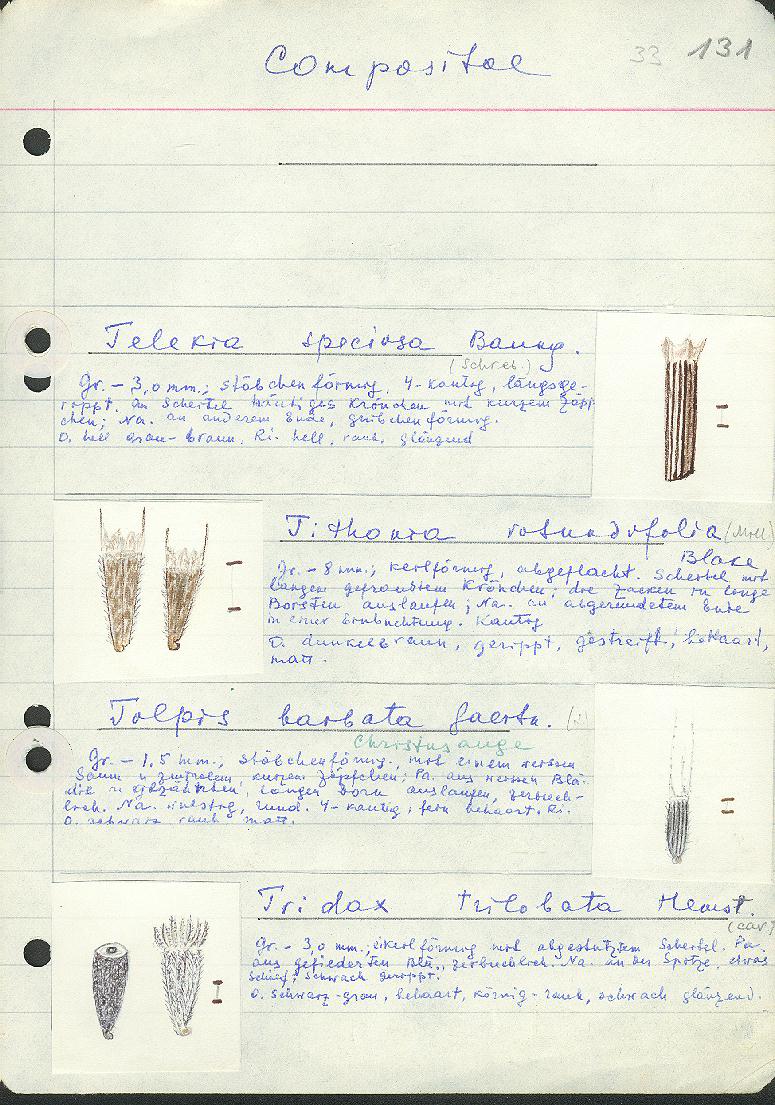 Compositae
33 131
Telekia speciosa Baumg.
(Schreb.)
Gr. - 3,0 mm.; stäbchenförmig, 4-kantig, längsge-
rippt. An Scheitel häutiges Krönchen mit kurzem Zäpf-
chen; Na. an anderem Ende, grübchenförmig.
O. hell grau-braun, Ri. hell, rauh, glänzend
Tithonia rotundifolia (Mill.)
Blake
Gr. - 8 mm.; keilförmig, abgeflacht. Scheitel mit
langem gefranstem Krönchen; die Zacken in lange
Borsten auslaufen; Na. an abgerundetem Ende
in einer Einbuchtung. Kantig
O. dunkelbraun, gerippt, gestreift, behaart,
matt.
Tolpis barbata Gaertn.
Christusauge
Gr. - 1,5 mm.; stäbchenförmig, mit einem weissen
Saum u. zentralem, kurzem Zäpfchen; Pa. aus weissen
die langen auslaufen, zerbrech-
lich. Na. rund. 4-kantig, fein behaart. Ri.
O. schwarz rauh matt.
Tridax trilobata Hemsl.
(Cav.)
Gr. - 3,0 mm.; keilförmig mit abgestutztem Scheitel. Pa.
aus gefiederten zerbrechlich. Na. an der Spitze, etwas
schief, schwach gerippt.
O. schwarz-grau, behaart, körnig-rauh, schwach glänzend.